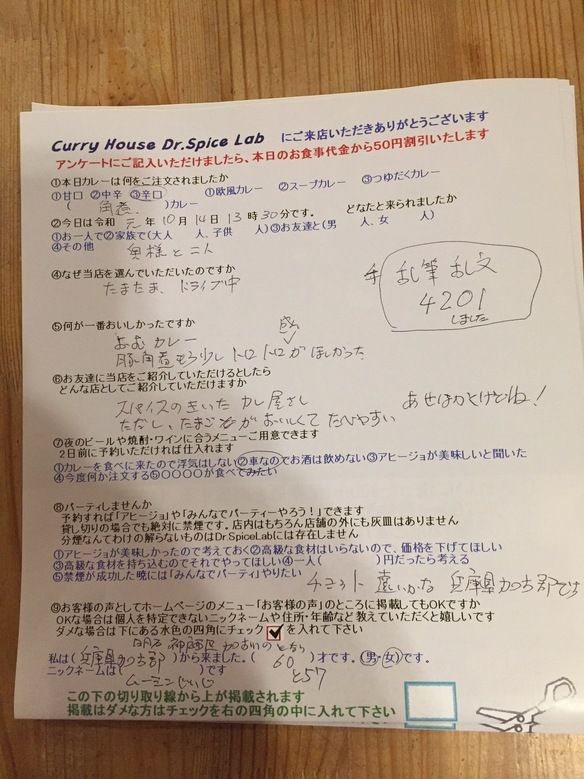 Curry House Dr.Spice Lab にご来店いただきありがとうございます
アンケートにご記入いただけましたら、本日のお食事代金から50円割引いたします
①本日カレーは何をご注文されましたか
①甘口 ②中辛 ③辛口 ①欧風カレー ②スープカレー ③つゆだくカレー
( 角煮 )カレー
②今日は令和 元 年 10 月 14 日 13 時 30 分です。 どなたと来られましたか
①お一人で②家族で(大人 人、子供 人)③お友達と(男 人、女 人)
④その他 奥様と二人
④なぜ当店を選んでいただいたのですか
たまたま、ドライブ中
乱筆乱文
4201
しました
⑤何が一番おいしかったですか
おむカレー
豚角煮もう少しトロトロ感がほしかった
⑥お友達に当店をご紹介していただけるとしたら
どんな店としてご紹介していただけますか
スパイスの立いた カレー屋さん
ただし、たまごがおいしくてたべやすい
あせはかくけどね!
⑦夜のビールや焼酎・ワインに合うメニューご用意できます
2日前に予約いただければ仕入れます
①カレーを食べに来たので浮気はしない②車なのでお酒は飲めない③アヒージョが美味しいと聞いた
④今度何か注文する⑤〇〇〇〇が食べてみたい
⑧パーティしませんか
予約すれば「アヒージョ」や「みんなでパーティーやろう!」できます
貸し切りの場合でも絶対に禁煙です。店内はもちろん店舗の外にも灰皿はありません
分煙なんてわけの解らないものはDr.SpiceLabには存在しません
①アヒージョが美味しかったので考えておく②高級な食材はいらないので、価格を下げてほしい
③高級な食材を持ち込むのでそれでやってほしい④一人( )円だったら考える
⑤禁煙が成功した暁には「みんなでパーティ」やりたい
チョット遠いかな 兵庫県加古郡です
⑨お客様の声としてホームページのメニュー「お客様の声」のところに掲載してもOKですか
OKな場合は個人を特定できないニックネームや住所・年齢など教えていただくと嬉しいです
ダメな場合は下にある水色の四角にチェック を入れて下さい
明石 神戸区 加古川のとなり
私は( 兵庫県加古郡 )から来ました。( 60 )才です。(男・女)です。
と57
ニックネームは( ムーミンじいじ )です
この下の切り取り線から上が掲載されます
掲載はダメな方はチェックを右の四角の中に入れて下さい